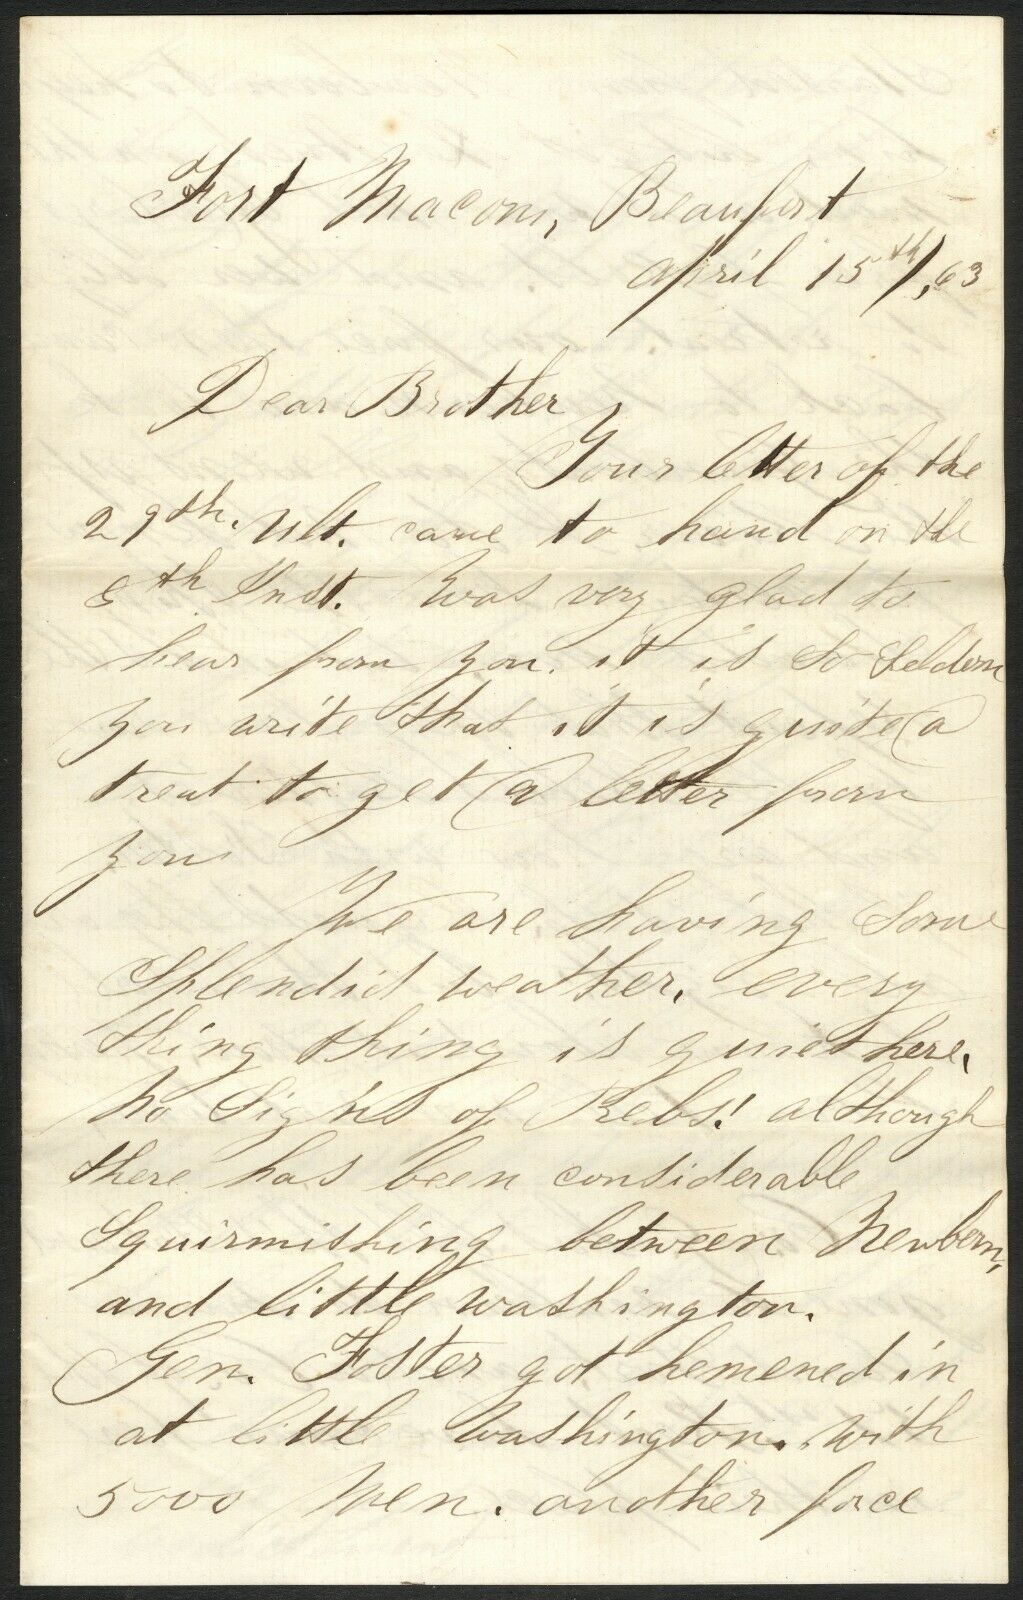 Fort Macon, Beaufort
april 15th/, 63
Dear Brother
Your letter of the
29th. Ult. came to hand on the
8th Inst. Was very glad to
hear from you. it is so Seldom
you write that it is quite a
treat to get a letter from
you
We are having Some
Splendid weather. every
thing thing is quiet here.
No Signs of Rebs! although
there has been considerable
Squirmishing between Newbern,
and little washington.
Gen. Foster got hemened in
at little Washington. with
5000 Men. another force